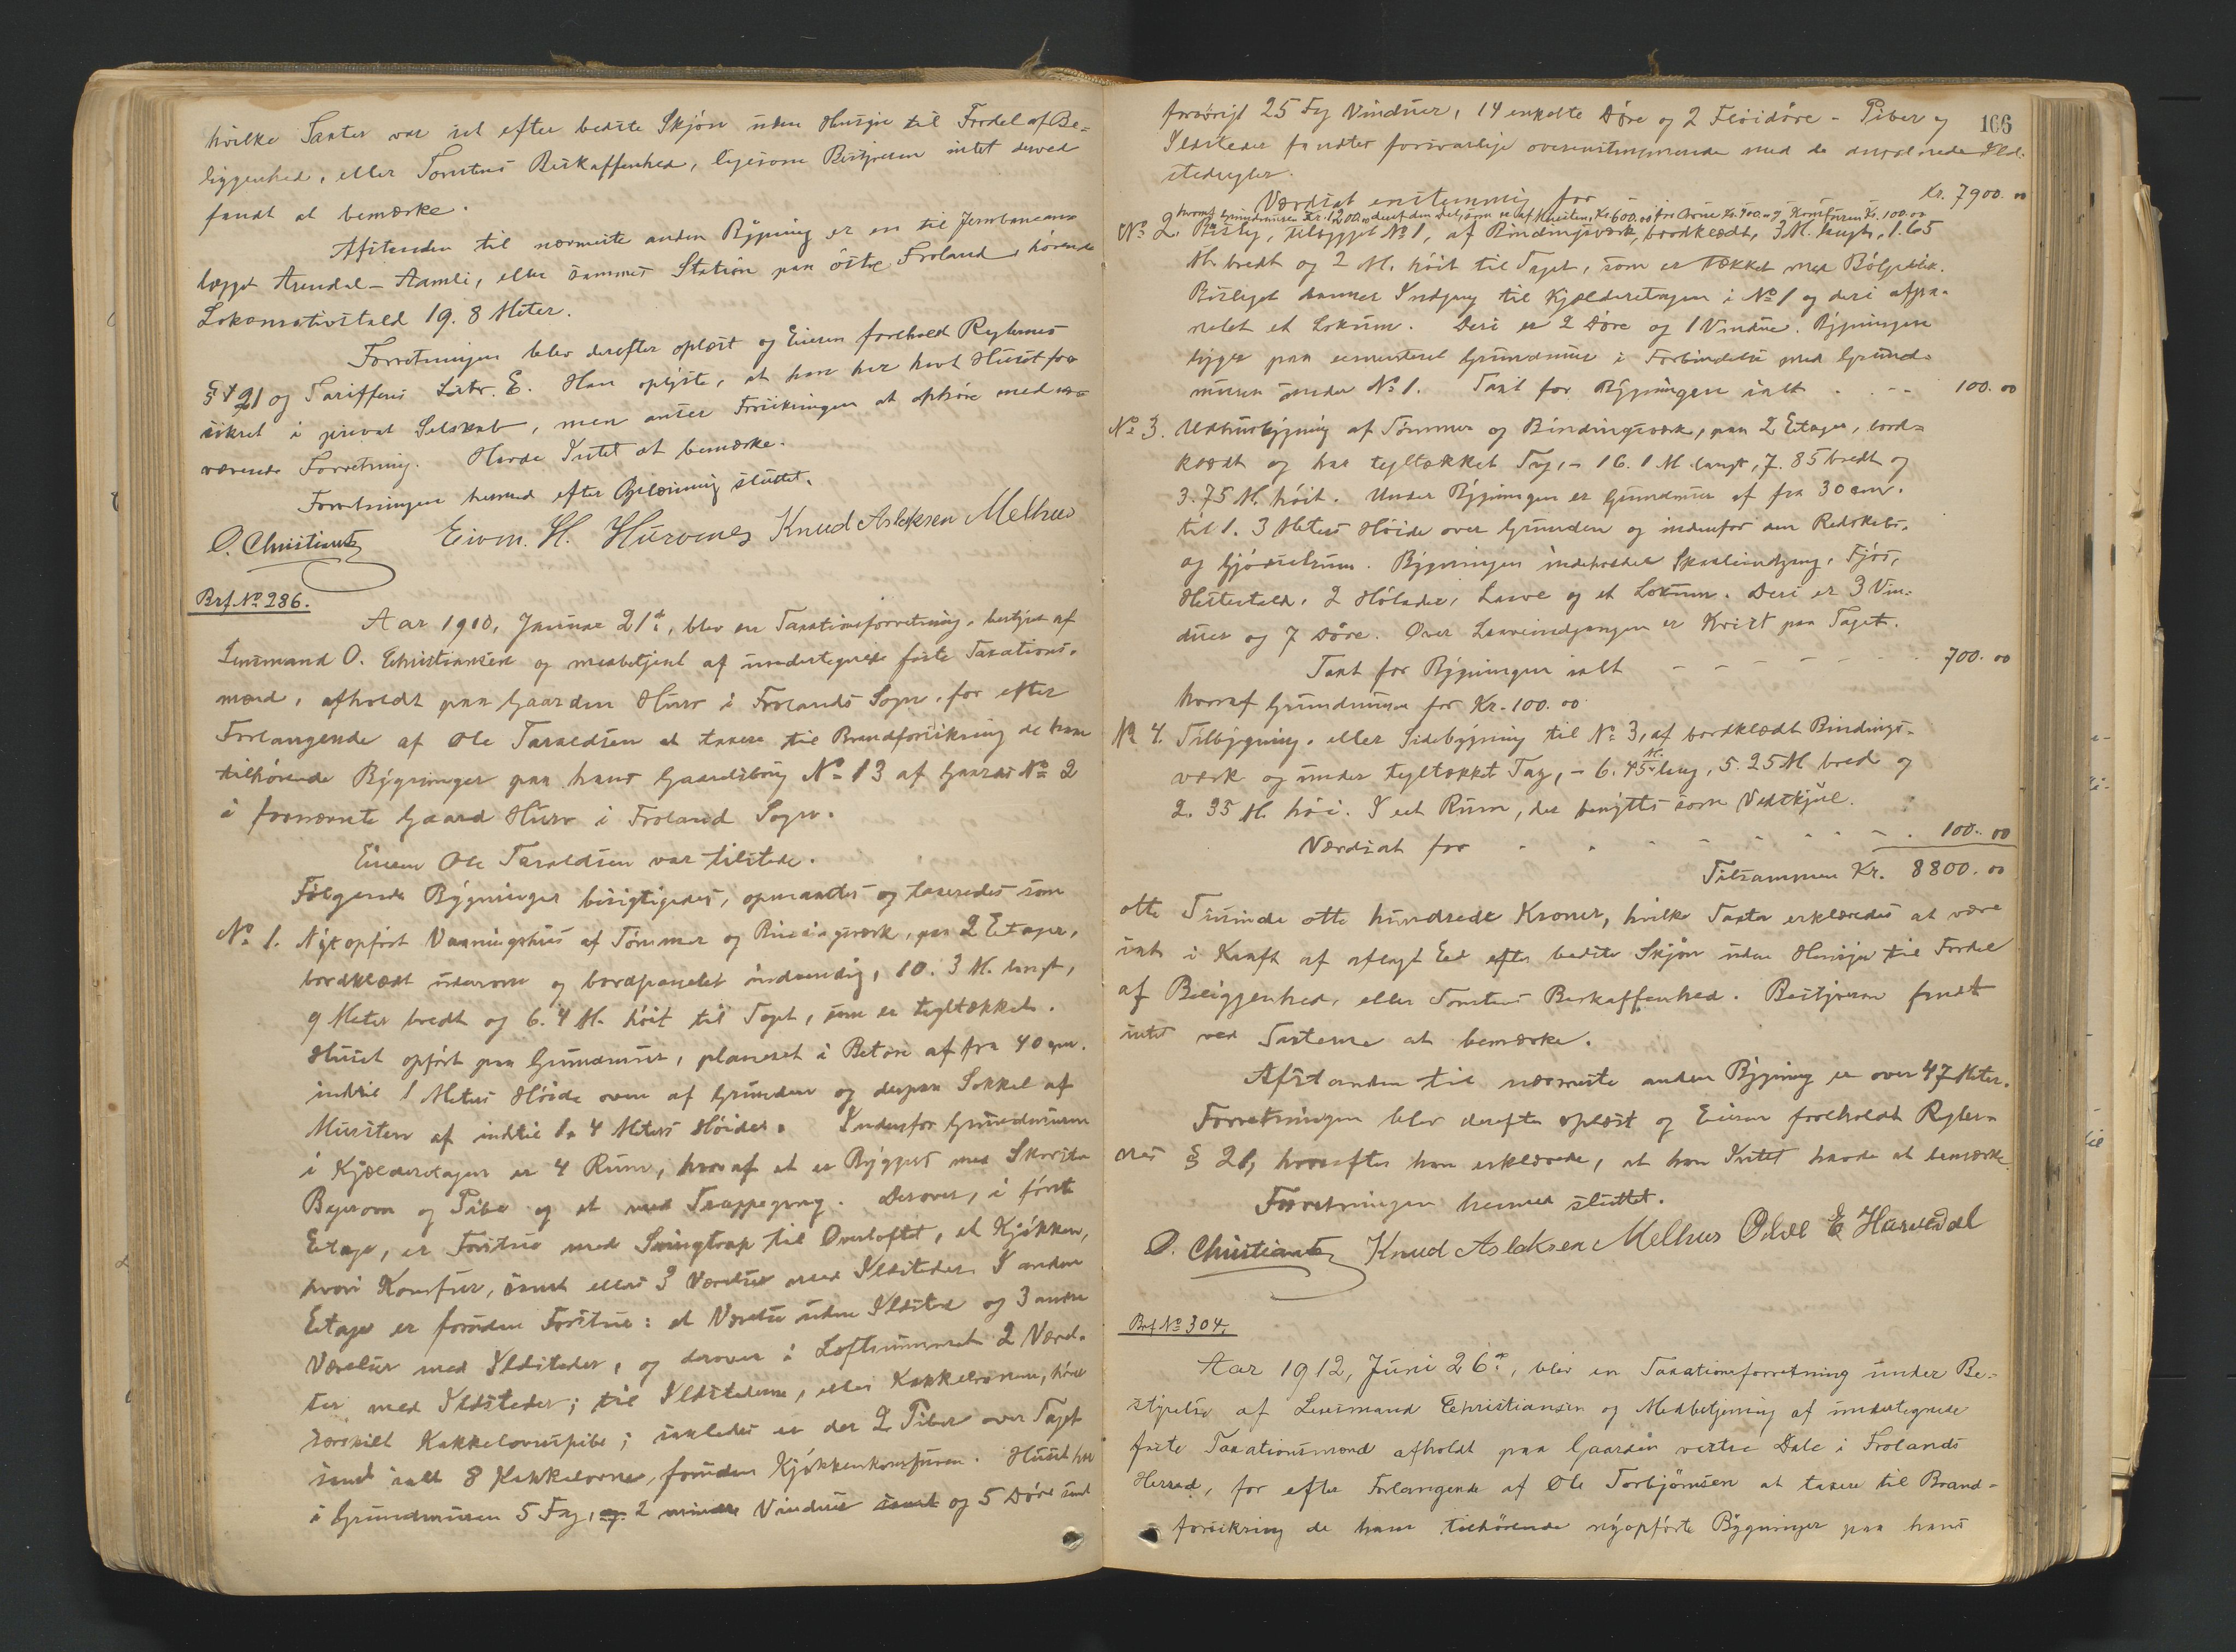 hvilke Taxter var sat efter bedste Skjøn uden Hensyn til Fordel af Be=
liggenhed, eller Tomtens Beskaffenhed, ligesom Bestyreren intet derved
fandt at bemærke.
Afstanden til nærmeste anden Bygning er en til Jernbanean=
lægget Arendal-Aamli, eller sammes Station paa østre Froland, hørende
Lokomotivstald 19.8 Meter.
Forretningen blev derefter oplæst og Eieren foreholdt Reglernes
§ 21 og Tariffens Littr. E. Han oplyste, at han har havt Huset for=
sikret i privat Selskab, men anser Forsikringen at ophøre med nær=
værende Forretning. Havde Intet at bemærke.
Forretningen hermed efter Oplæsning sluttet.
O. Christiansen Eivn. H. Hurvenes Knud Aslaksen Melhus
Brf. No 286.
Aar 1910, Januar 21de, blev en Taxationsforretning, bestyret af
Lensmand O. Christiansen og medbetjent af undertegnede faste Taxations=
mænd, afholdt paa Gaarden Hurv i Frolands Sogn, for efter
Forlangende af Ole Taraldsen at taxere til Brandforsikring de ham
tilhørende Bygninger paa hans Gaardsbrug No 13 af Gaards No 2
i fornævnte Gaard Hurv i Froland Sogn.
Eieren Ole Taraldsen var tilstede.
Følgende Bygninger besigtigedes, opmaaltes og taxeredes som
No 1. Nyt opført Vaaningshus af Tømmer og Bindingsværk, paa 2 Etager,
bordklædt udvendig og bordpanelet indvendig, 10.3 M. langt,
9 Meter bredt og 6.4 M. høit til Taget, som er tegltækket.
Huset opført paa Grundmur, planeret i Beton af fra 40 cm.
indtil 1 Meters Høide oven af Grunden og derpaa Sokkel af
Mursten af indtil 1.4 Meters Høide. Indenfor Grundmuren
i Kjælderetagen er 4 Rum, hvoraf et er Bryggerhus med Skorsten
Bagerovn og Pibe og et med Trappegang. Derover, i første
Etage, er Forstue med Svingtrap til Overloftet, et Kjøkken,
hvori Komfur, samt ellers 3 Værelser med Ildsteder. I anden
Etage er foruden Forstue: et Værelse uden Ildsted og 3 andre
Værelser med Ildsteder, og derover i Loftsrummet 2 Værel=
ser med Ildsteder; til Ildstederne, eller Kakkelovnene, hører
særskilt Kakkelovnspibe; saaledes er der 2 Piber over Taget
samt ialt 8 Kakkelovne, foruden Kjøkkenkomfuren. Huset har
i Grundmuren 5 Fag, og 2 mindre Vinduer samt og 5 Døre samt
166
forøvrigt 25 Fag Vinduer, 14 enkelte Døre og 2 Fløidøre - Piber og
Ildsteder fandtes forsvarlige overensstemmende med de anordnede Ild=
stedregler.
Værdsat enstemmig for Kr. 7900.00
hvoraf Grundmuren Kr. 1200.00 deraf den Del som er af Mursten, Kr 600.00 for Ovne Kr. 400.- og Komfuren Kr. 100.00
No 2. Bislag, tilbygget No 1, af Bindingsværk, bordklædt, 3 M. langt, 1.65
M. bredt og 2 M. høit til Taget, som er tækket med Bølgeblik.
Bislaget danner Indgang til Kjælderetagen i No 1 og deri afpa=
nelet et Lokum. Deri er 2 Døre og 1 Vindue. Bygningen
ligger paa cementeret Grundmur i Forbindelse med Grund=
muren under No 1. Taxt for Bygningen ialt - - - 100.00
No 3. Udhusbygning af Tømmer og Bindingsværk, paa 2 Etager, bord=
klædt og har tegltækket Tag, - 16.1 M langt, 7.85 bredt og
3.75 M. høit. Under Bygningen er Grundmur af fra 30 cm.
til 1.3 Meters Høide over Grunden og indenfor den Redskabs-
og Gjødselrum. Bygningen indeholder Skaaleindgang, Fjøs,
Hestestald, 2 Høladder, Laave og et Lokum. Deri er 3 Vin=
duer og 7 Døre. Over Laaveindgangen er Kvist paa Taget.
Taxt for Bygningen ialt - - - - - - 700.00
hvoraf Grundmuren for Kr. 100.00
No 4. Tilbygning, eller Sidebygning til No 3, af bordklædt Bindings=
værk og under tegltækket Tag, - 6.45 M. lang, 5.25 M bred og
2.35 M. høi. I eet Rum, der benyttes som Vedskjul.
Værdsat for - - - - - - 100.00
Tilsammen Kr. 8800.00
otte Tusinde otte hundrede Kroner, hvilke Taxter erklæredes at være
sat i Kraft af aflagt Eed efter bedste Skjøn uden Hensyn til Fordel
af Beliggenhed, eller Tomtens Beskaffenhed. Bestyreren fandt
intet ved Taxterne at bemærke.
Afstanden til nærmeste anden Bygning er over 47 Meter.
Forretningen blev derefter oplæst og Eieren foreholdt Regler=
nes § 21, hvorefter han erklærede, at han Intet havde at bemærke.
Forretningen hermed sluttet.
O. Christiansen Knud Aslaksen Melhus Olve E Harvedal
Brf No 304.
Aar 1912, Juni 26de, blev en Taxationsforretning under Be=
styrelse af Lensmand Christiansen og Medbetjening af undertegnede
faste Taxationsmænd afholdt paa Gaarden vestre Dale i Frolands
Herred, for efter Forlangende af Ole Torbjørnsen at taxere til Brand=
forsikring de ham tilhørende nyopførte Bygninger paa hans